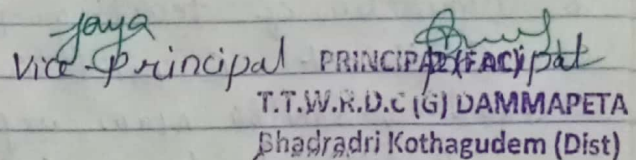 Jaya
Vice-Principal PRINCIPAL (FAC)
T.T.W.R.D.C (G) DAMMAPETA
Bhadradri Kothagudem (Dist)